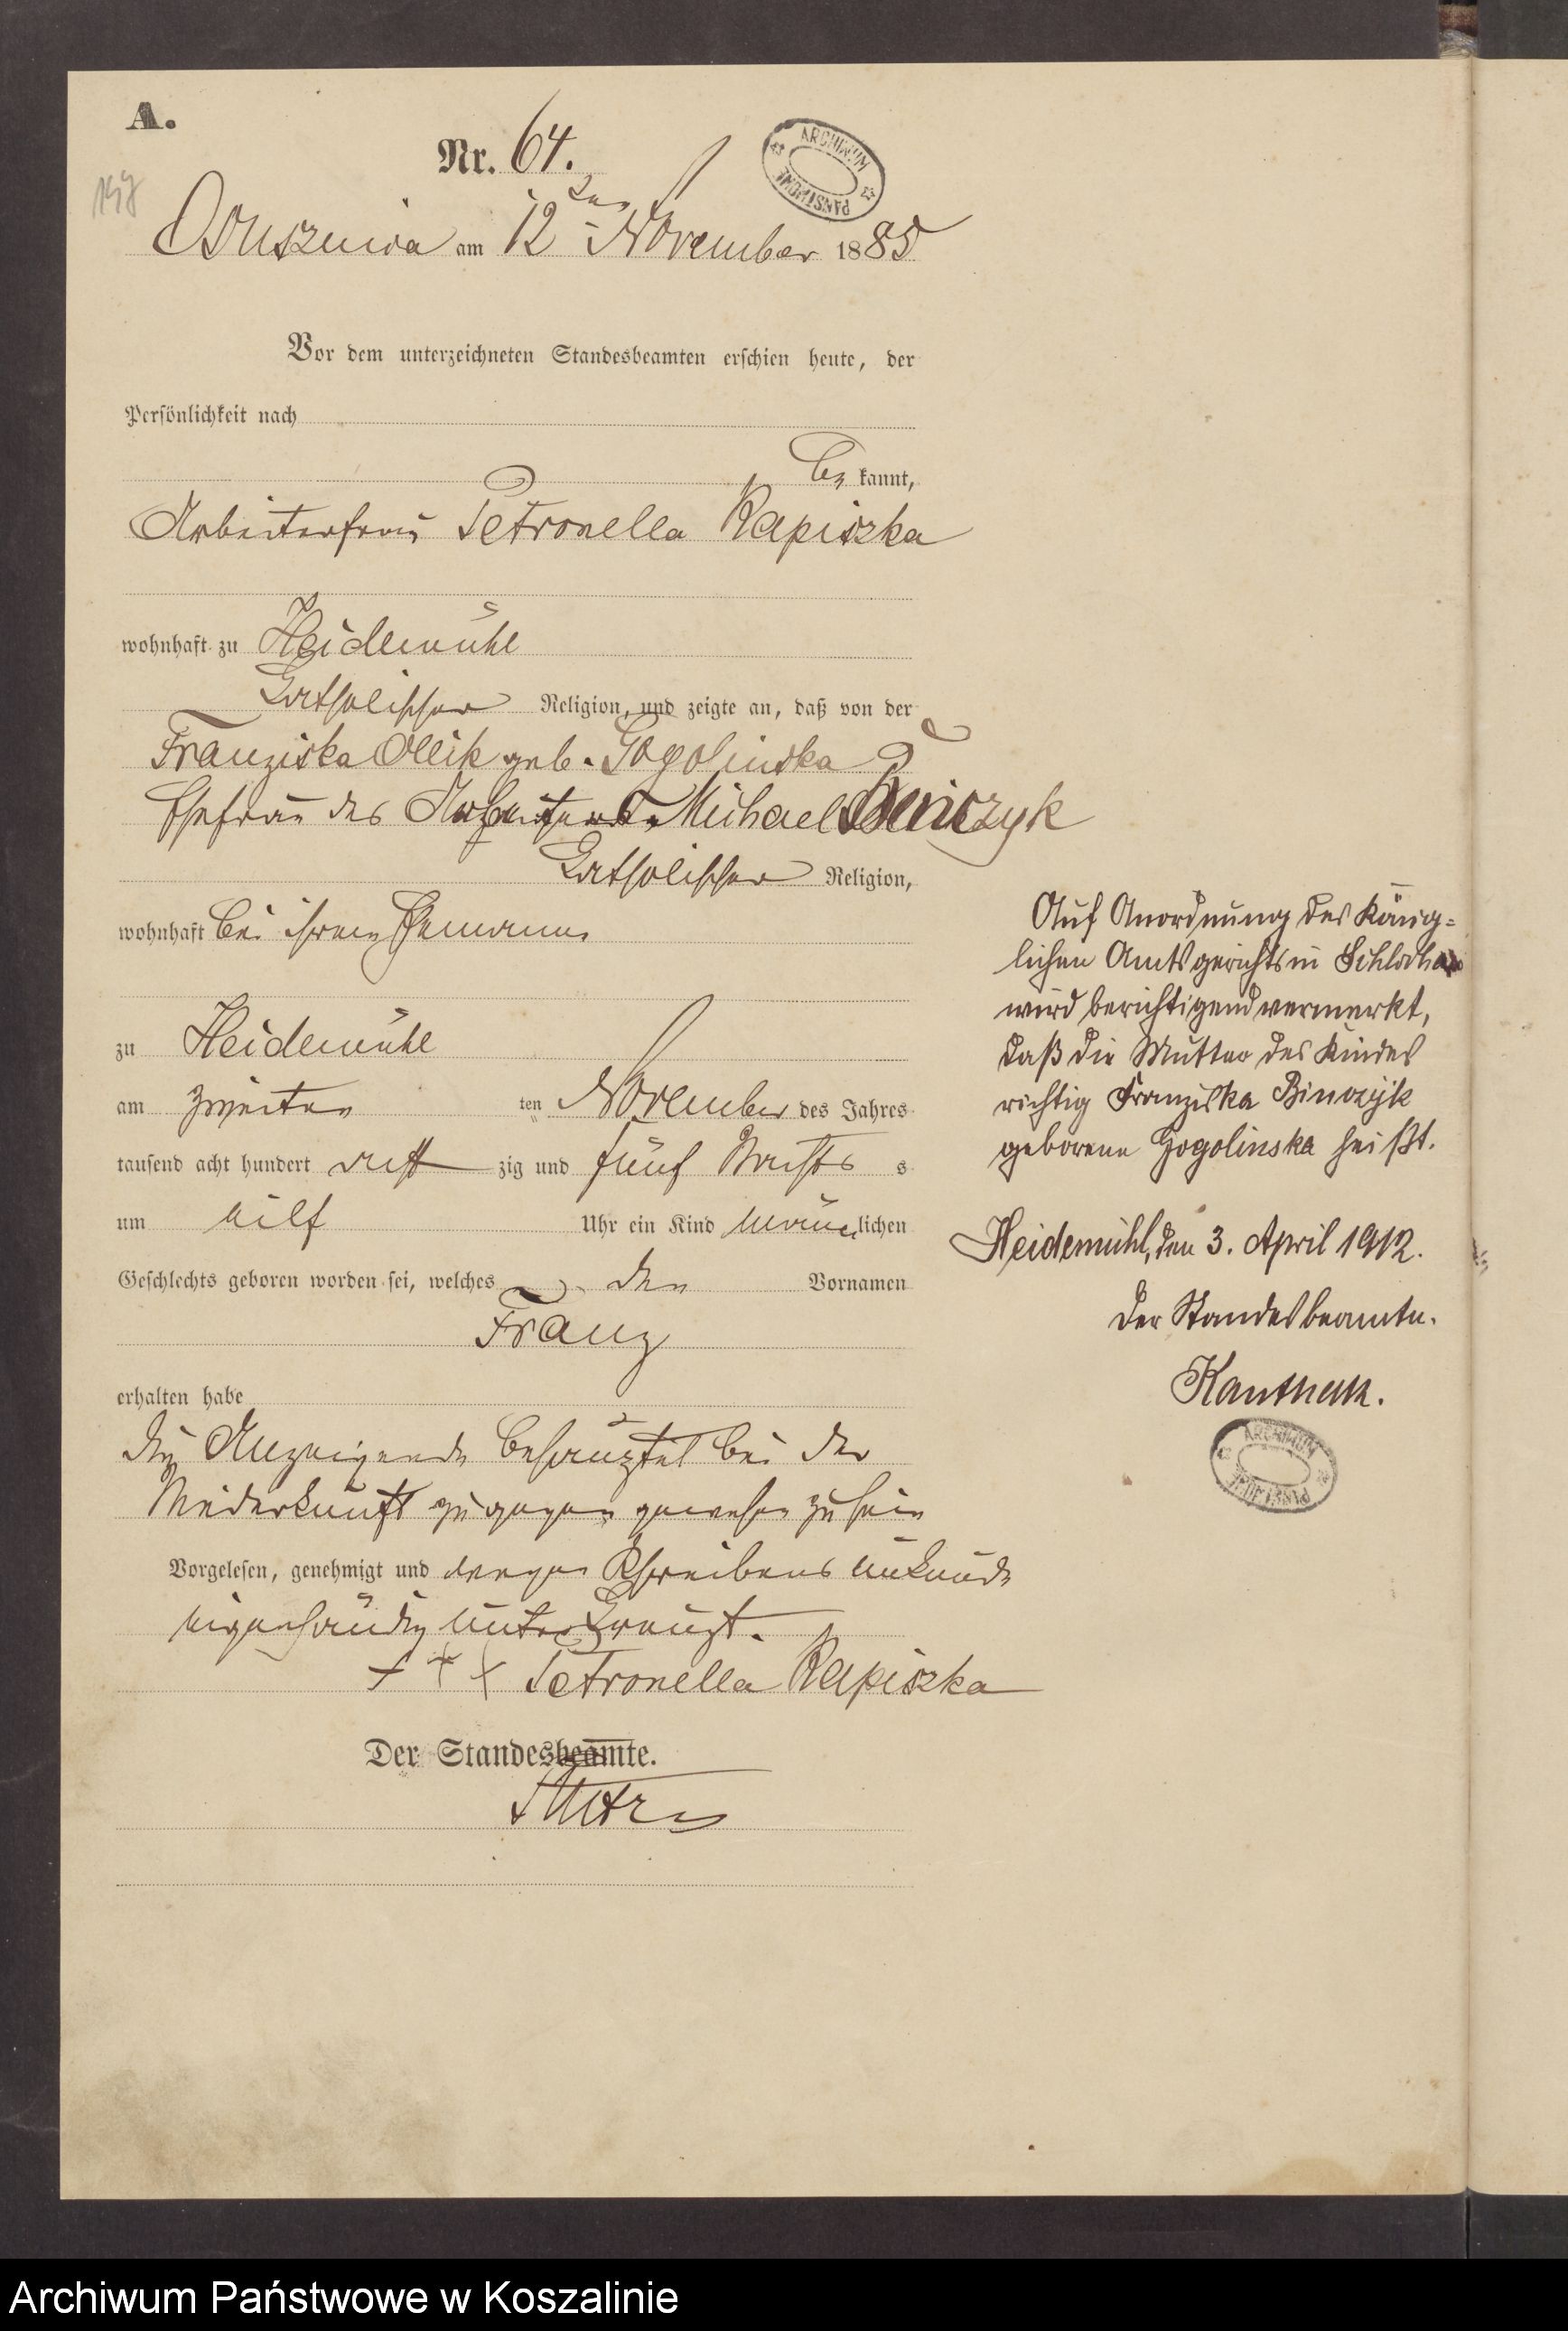 A.
Nr. 64.
147
ARCHIWUM PAŃSTWOWE
Osusznica am 12ten November 1885
Vor dem unterzeichneten Standesbeamten erschien heute, der
Persönlichkeit nach
be kannt,
Arbeiterfrau Petronella Rapiszka
wohnhaft zu Heidemühl
katholischer Religion, und zeigte an, daß von der
Franziska Ollik geb. Gogolinska
Ehefrau des Arbeiters Michael Binczyk
katholischer Religion,
wohnhaft bei ihrem Ehemann
zu Heidemühl
am zweiten ten November des Jahres
tausend acht hundert acht zig und fünf Nachts s
um eilf Uhr ein Kind männlichen
Geschlechts geboren worden sei, welches den Vornamen
Franz
erhalten habe
Die Anzeigende behauptet bei der
Niederkunft zugegen gewesen zu sein
Vorgelesen, genehmigt und wegen Schreibens unkunde
eigenhändig unterkreuzt.
+ + + Petronella Rapiszka
Der Standesbeamte.
Auf Anordnung des König=
lichen Amtsgerichts in Schlochau
wird berichtigend vermerkt,
daß die Mutter des Kindes
richtig Franziska Binczyk
geborene Gogolinska heißt.
Heidemühl, den 3. April 1912.
Der Standesbeamte.
Kanthack.
ARCHIWUM PAŃSTWOWE
Archiwum Państwowe w Koszalinie